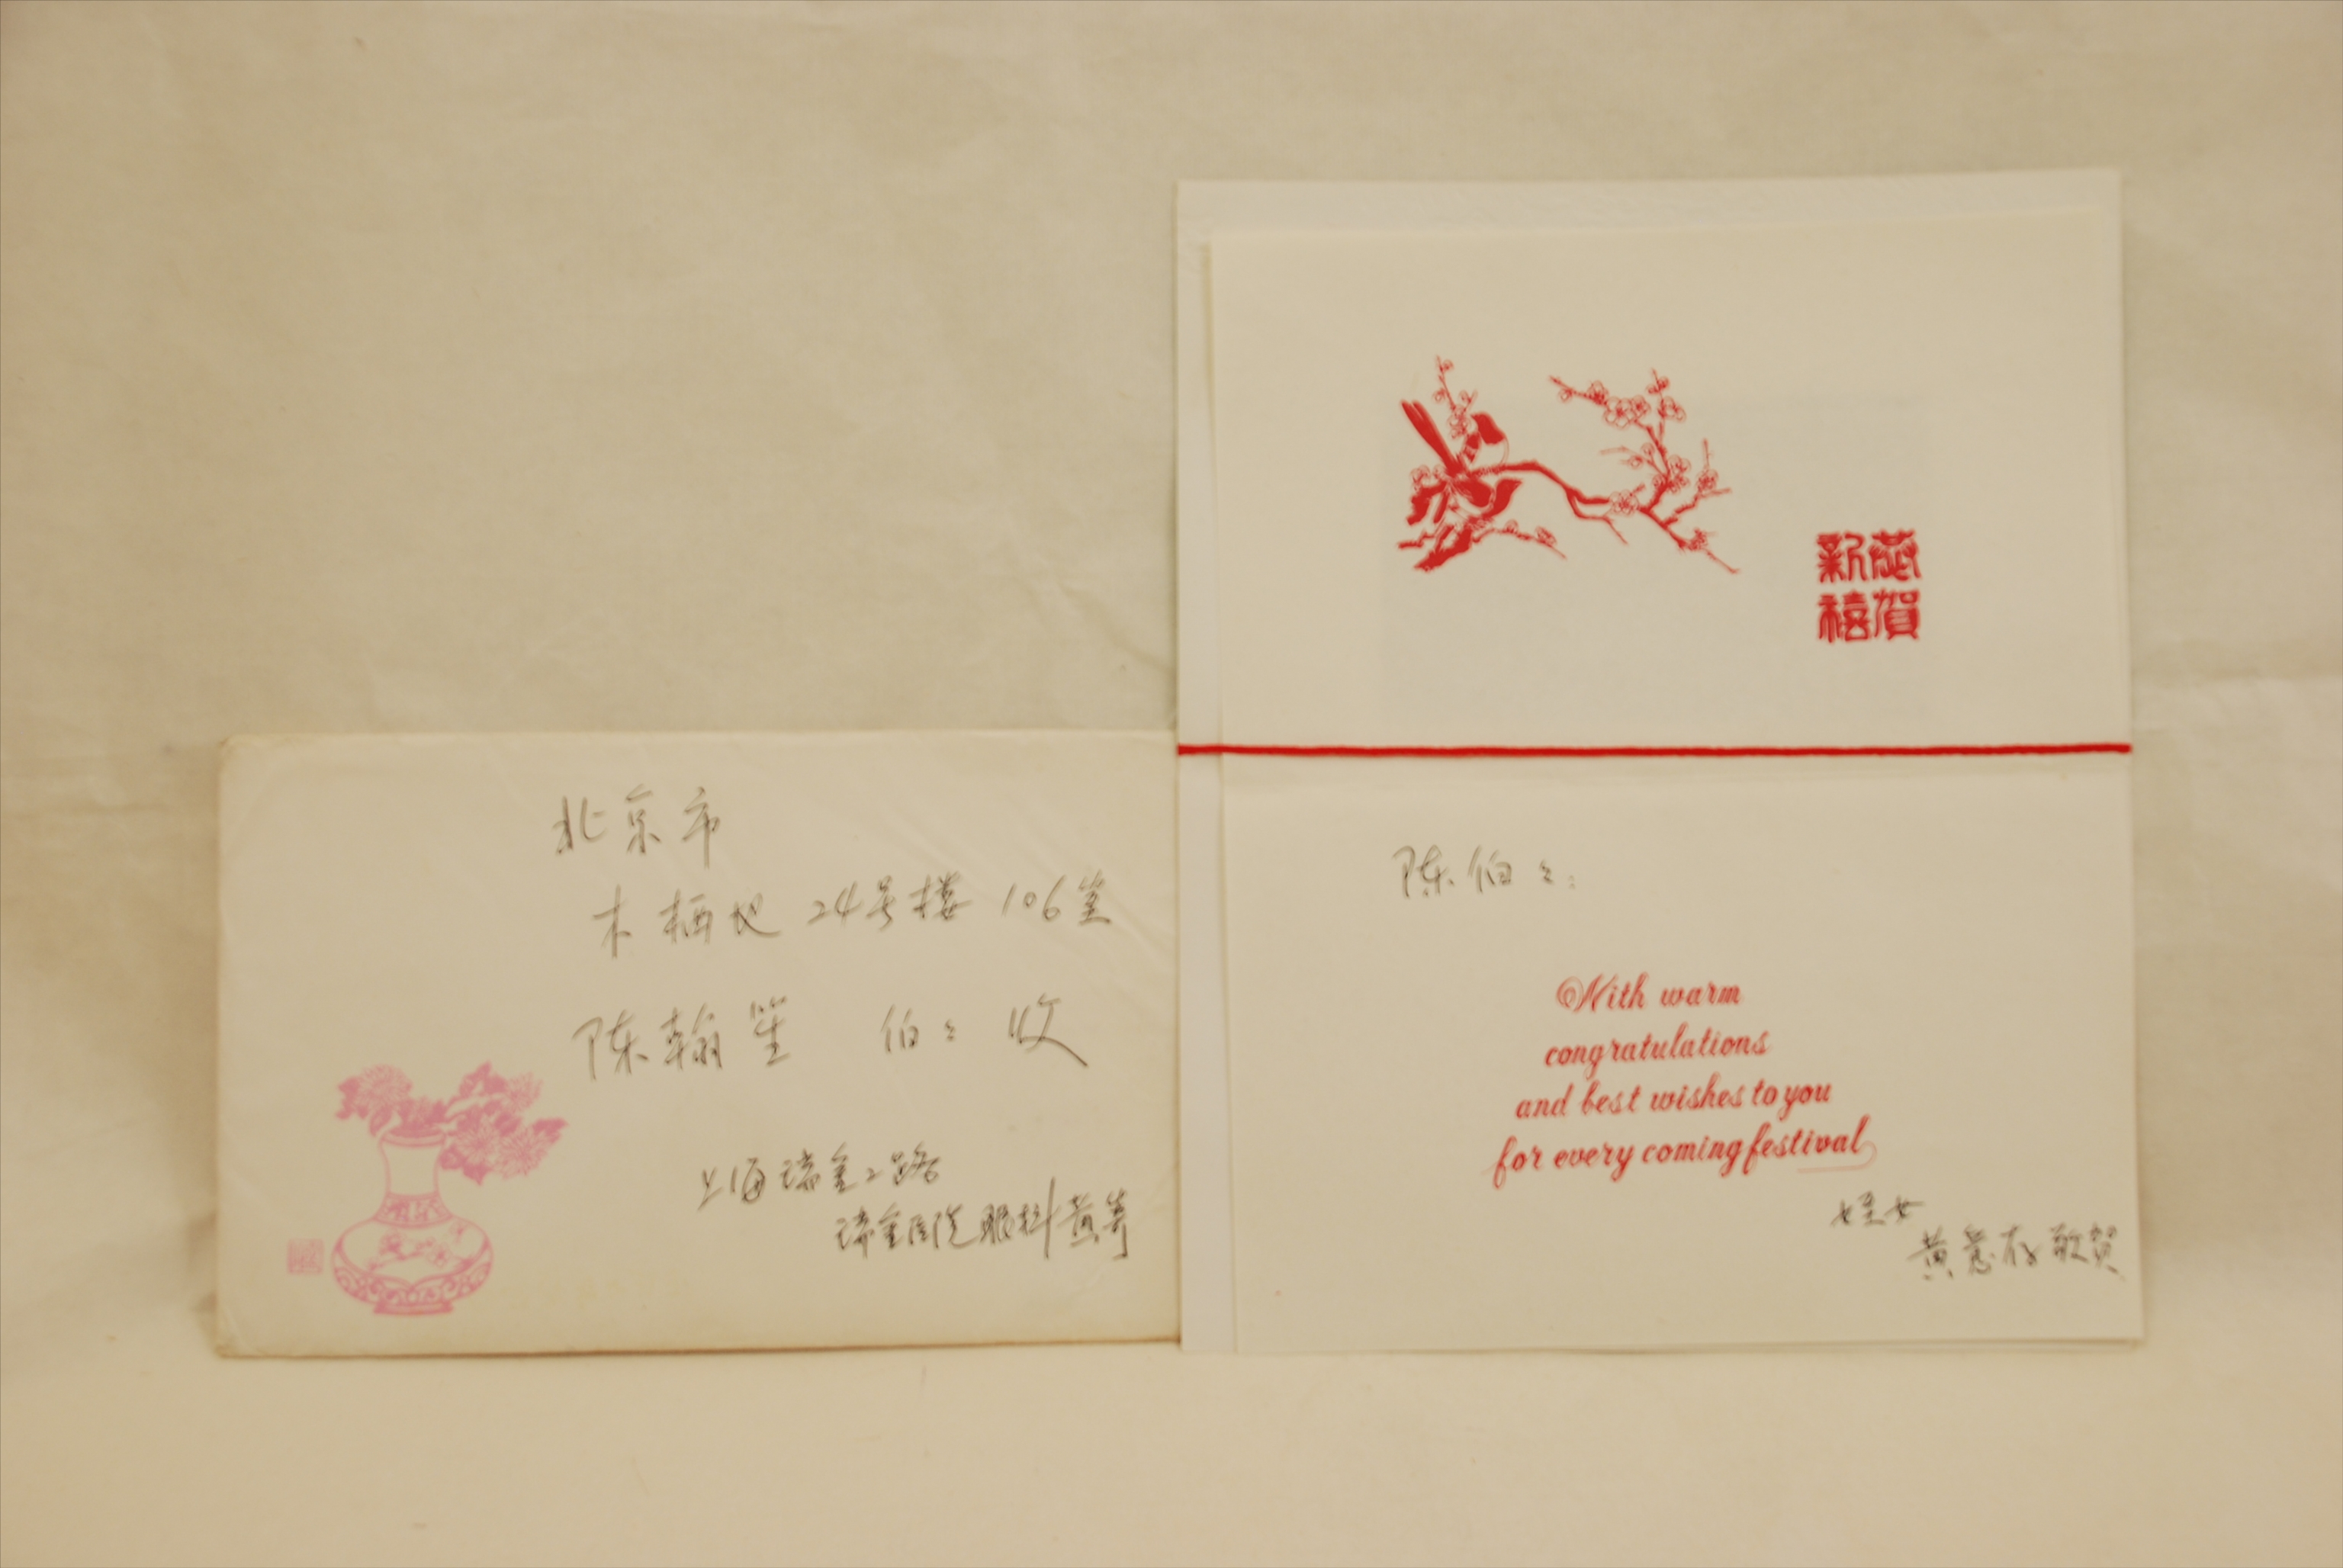 北京市
木栖地 24号楼 106室
陈翰笙 伯々 收
上海瑞金二路
瑞金医院眼科黄寄
恭賀
新禧
陈伯々:
With warm
congratulations
and best wishes to you
for every coming festival
姪女
黄 敬贺